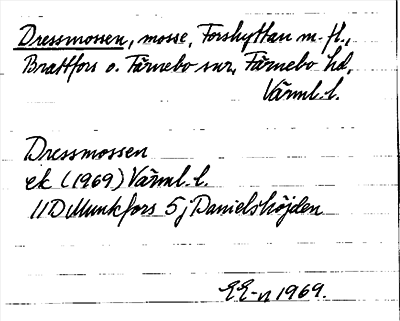 Dressmossen, mosse, Forshyttan m. fl.,
Brattfors o. Färnebo snr, Färnebo hd,
Värml. l.
Dressmossen
ek (1969) Värml. l.
11D Munkfors 5 j Danielshöjden
EE-n 1969.